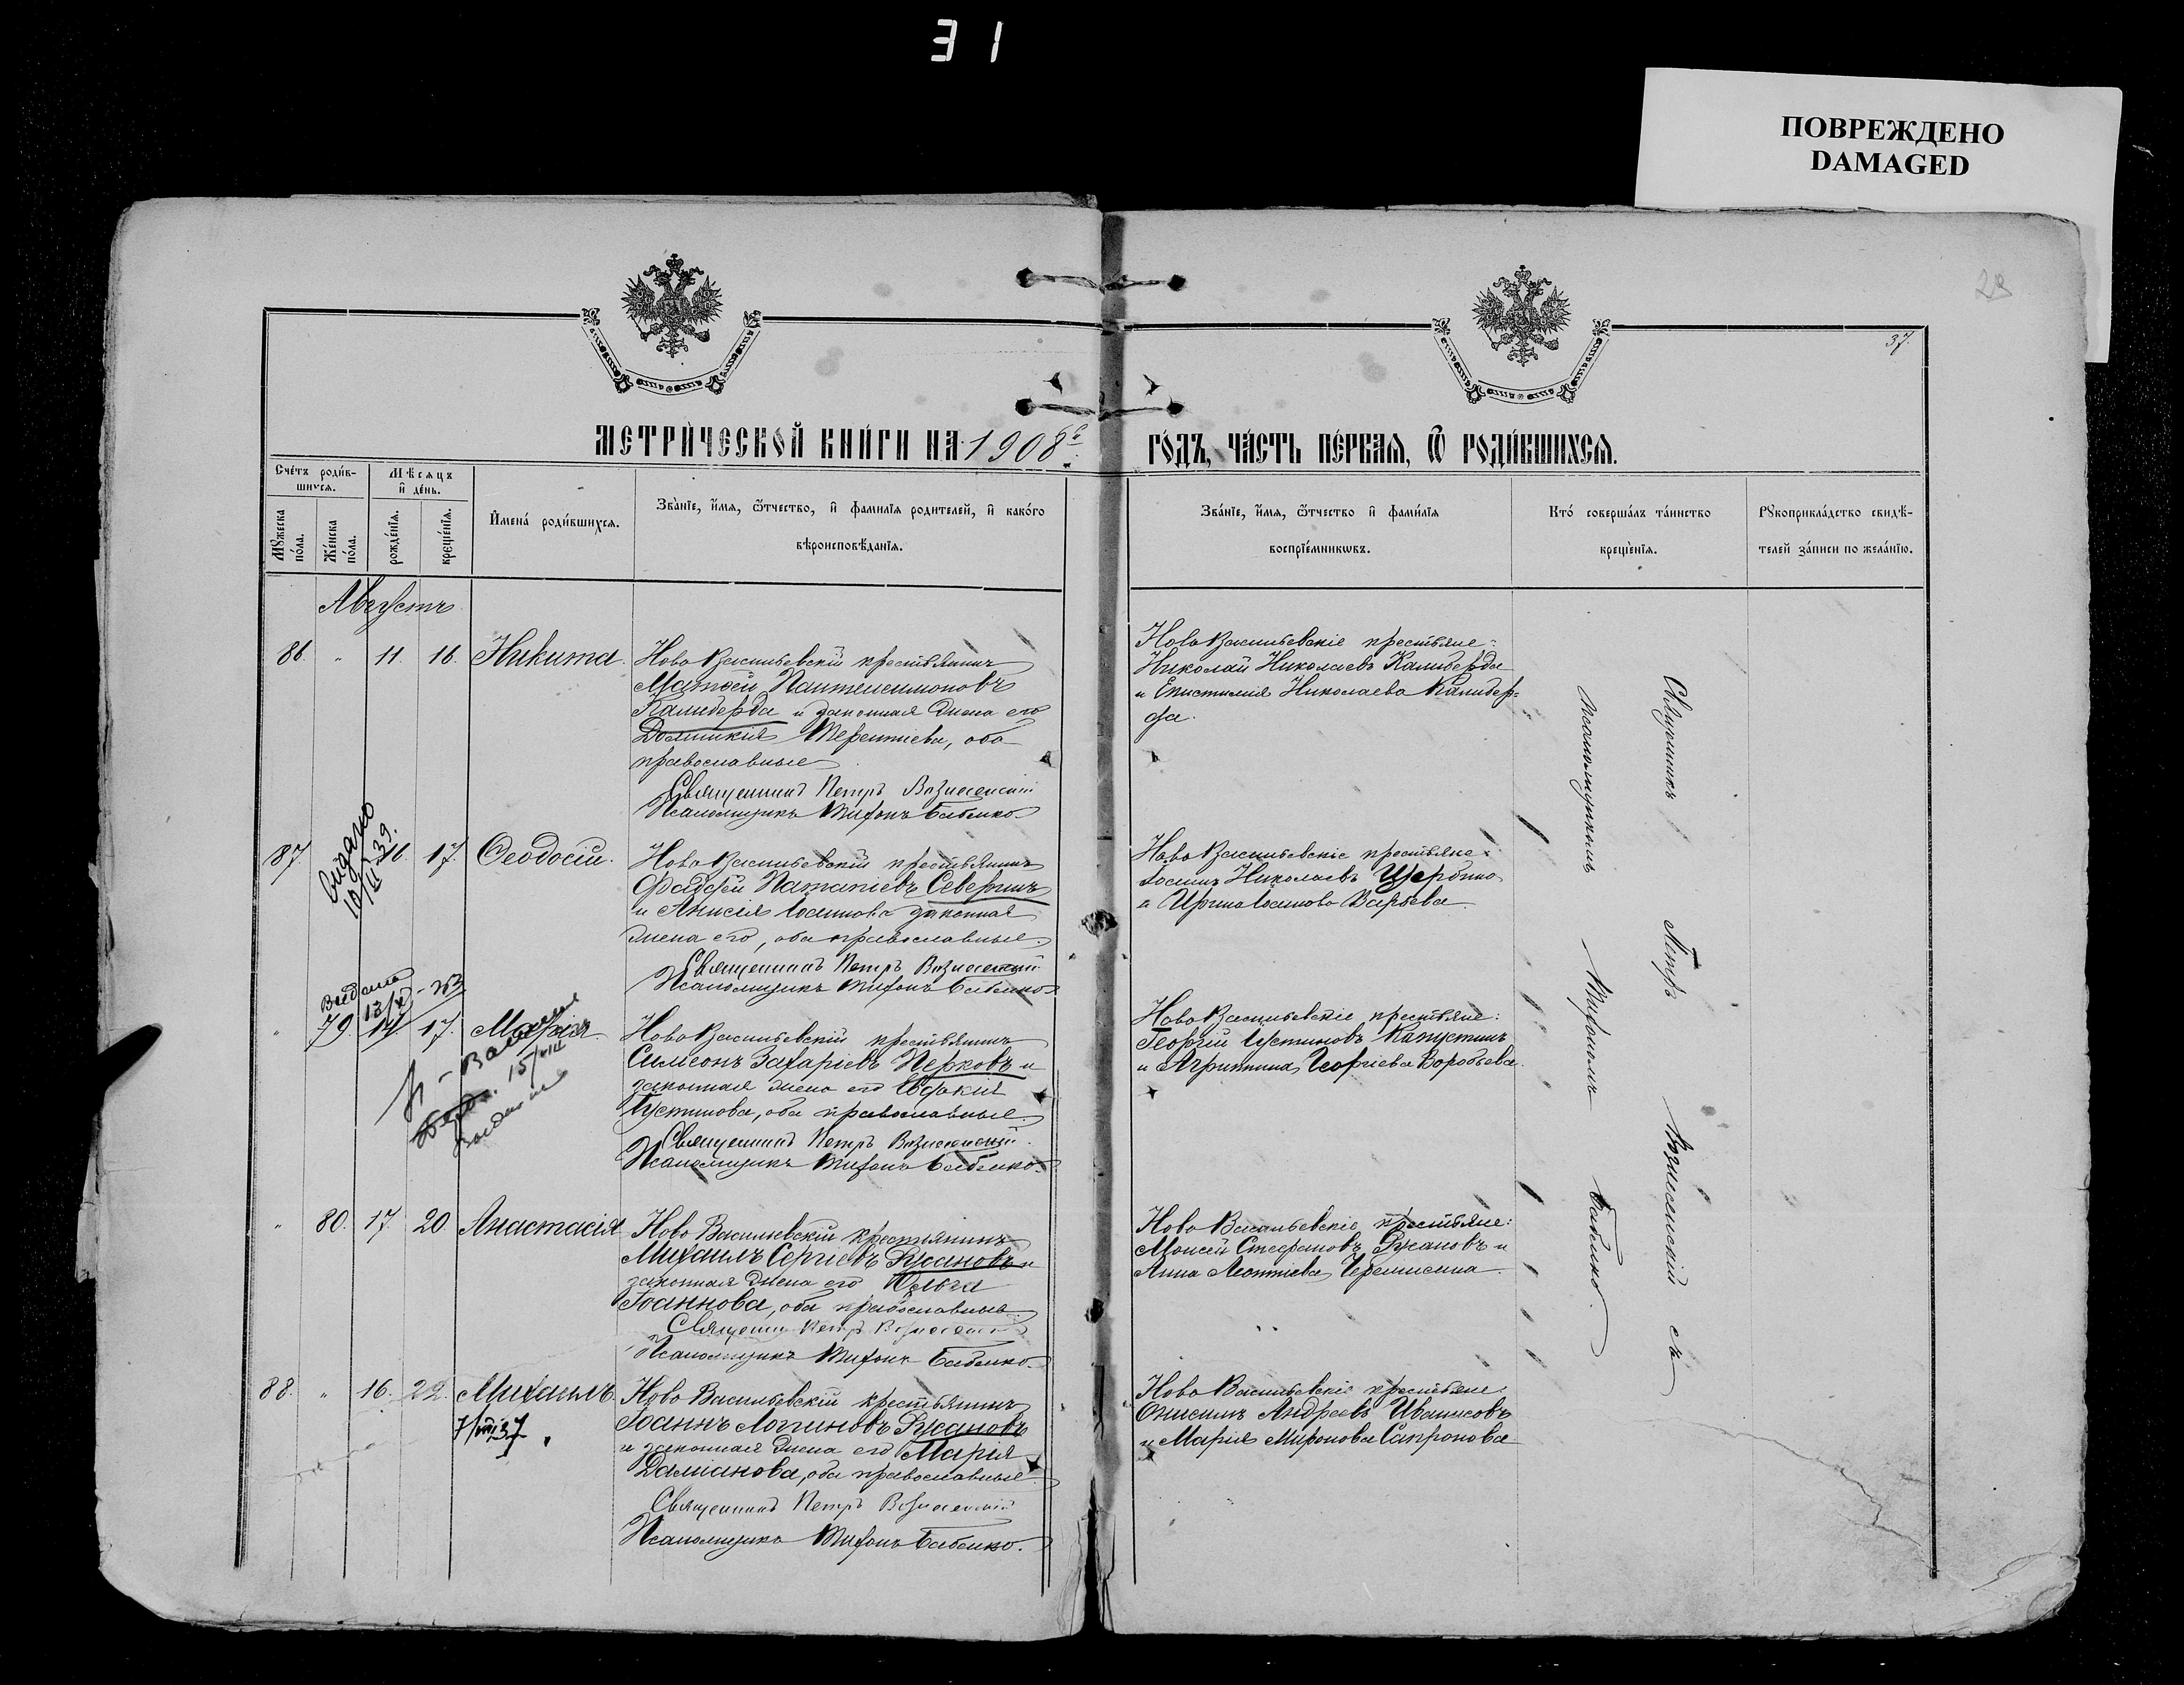 31
ПОВРЕЖДЕНО
DAMAGED
28
37.
МЕТРИ́ЧЕСКОЙ КНИ́ГИ НА 1908й
ГО́ДЪ, ЧА́СТЬ ПЕ́РВАѦ, Ѿ РОДИ́ВШИХСѦ.
Сче́тъ роди́в-
шихсѧ.
Мѣ́сѧцъ
и҆ де́нь.
И҆мена́ роди́вшихсѧ.
Зва́нїе, и҆́мѧ, ѻ҆́тчество, и҆ фами́лїѧ роди́телей, и҆ како́гѡ
вѣроисповѣ́данїѧ.
Мꙋ́жеска
по́ла.
Же́нска
по́ла.
рожде́нїѧ.
креще́нїѧ.
Зва́нїе, и҆́мѧ, ѻ҆́тчество и҆ фами́лїѧ
воспрїе́мникѡвъ.
Кто́ соверша́лъ та́инство
креще́нїѧ.
Рꙋкоприкла́дство свидѣ́-
телей за́писи по жела́нїю.
Августъ
86. " 11. 16. Никита.
Ново Васильевскій крестьянинъ
Матѳей Пантелеимоновъ
Калиберда и законная жена его
Домникія Терентіева, оба
православные
Священникъ Петръ Вознесенскій
Псаломщикъ Тихонъ Бабенко
Ново Васильевскіе крестьяне:
Николай Николаевъ Калиберда
и Епистимія Николаева Калибер-
да.
87. 16. 17. Ѳеодосій.
видано
10/II 39.
Ново Васильевскій крестьянинъ
Фаддей Ипатіевъ Северинъ
и Анисія Іоаннова законная
жена его, оба православные.
Священникъ Петръ Вознесенскій
Псаломщикъ Тихонъ Бабенко
Ново Васильевскіе крестьяне:
Іоаннъ Николаевъ Щербина
и Ирина Іоаннова Варьева.
Видана
" 79. 14. 17. Марія.
15/VIII
Ново Васильевскій крестьянинъ
Симеонъ Захаріевъ Перковъ и
законная жена его Евдокія
Іустинова, оба православные.
Священникъ Петръ Вознесенскій.
Псаломщикъ Тихонъ Бабенко.
Ново Васильевскіе крестьяне:
Георгій Іустиновъ Капустинъ
и Агриппина Георгіева Воробьева.
" 80. 17. 20. Анастасія
Ново Васильевскій крестьянинъ
Михаилъ Сергіевъ Русановъ и
законная жена его Юлія
Іоаннова, оба православные.
Священникъ Петръ Вознесенскій
Псаломщикъ Тихонъ Бабенко.
Ново Васильевскіе крестьяне:
Моисей Стефановъ Русановъ и
Анна Леонтіева Черемисина.
88. " 16. 22. Михаилъ.
7/VIII 37
Ново Васильевскій крестьянинъ
Іоаннъ Логгиновъ Русановъ
и законная жена его Марія
Даміанова, оба православные.
Священникъ Петръ Вознесенскій
Псаломщикъ Тихонъ Бабенко.
Ново Васильевскіе крестьяне:
Онисимъ Андреевъ Иванисовъ
и Марія Миронова Сапронова
Священникъ Петръ Вознесенскій съ
псаломщикомъ Тихономъ Бабенко.